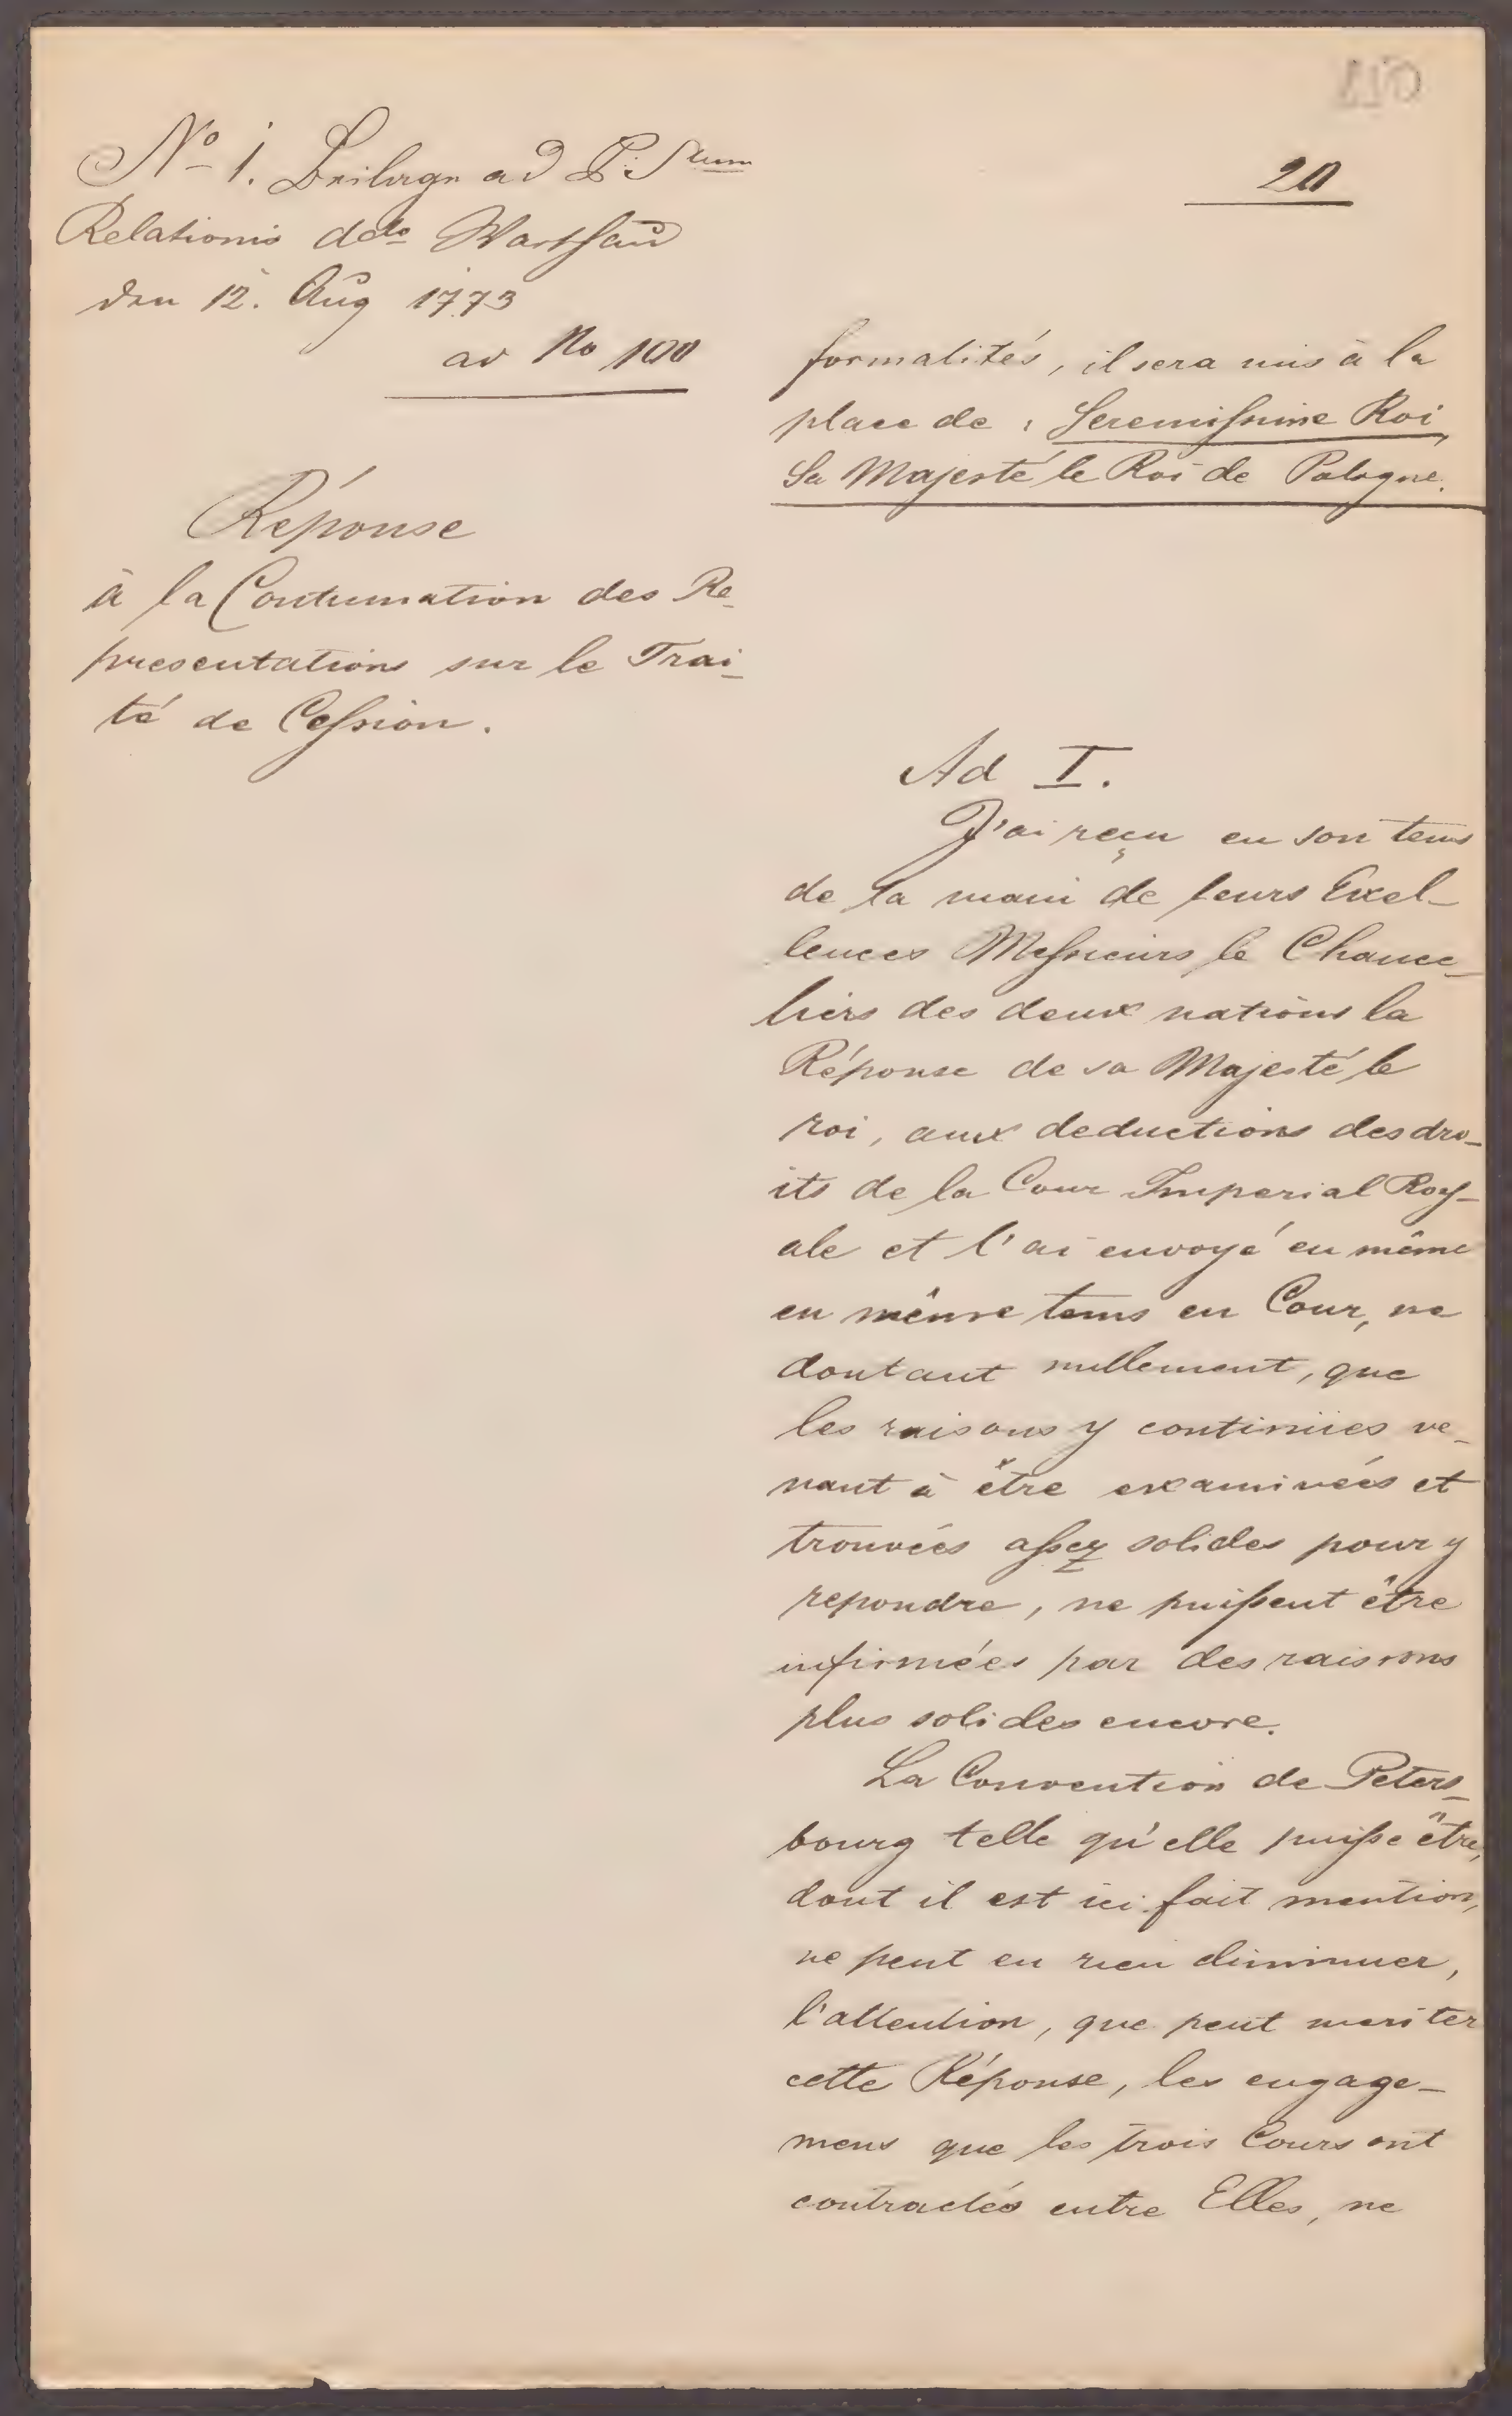 20
No 1. Beilage ad P. Stum
Relationis ddo Warschau
den 12. Aug 1773
ad No 100
Réponse
à la Contumation des Re-
presentations sur le Trai-
té de Cession.
formalités, il sera mis à la
place de : Seremissime Roi,
Sa Majesté le Roi de Pologne.
Ad I.
J'ai reçu en son tems
de la main de leurs Excel-
lences Messieurs le Chance-
liers des deux nations la
Réponse de sa Majesté le
roi, aux deductions des dro-
its de la Cour Imperial Roy-
ale et l'ai envoyé en même
en même tems en Cour, ne
doutant nullement, que
les raisons y continües ve-
nant à être examinées et
trouvées assez solides pour y
repondre, ne puissent être
infirmées par des raisons
plus solides encore.
La Convention de Peters-
bourg telle qu'elle puisse être,
dont il est ici fait mention,
ne peut en rien diminuer,
l'attention, que peut meriter
cette Réponse, les engage-
mens que les trois Cours ont
contractés entre Elles, ne